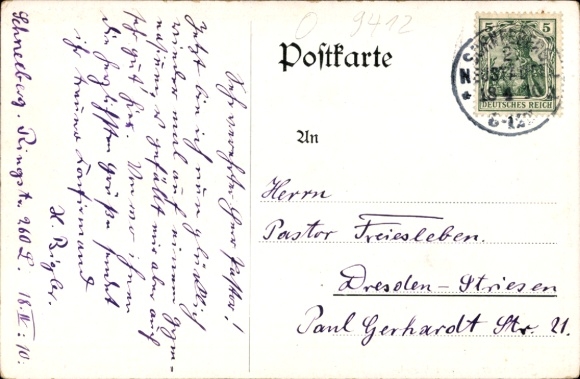 O 9412
Postkarte
5 5
DEUTSCHES REICH
An
Herrn
Pastor Freiesleben.
Dresden-Striesen
Paul Gerhardt Str. 21.
Sehr verehrter Herr Pastor!
Jetzt bin ich nun glücklich
wieder mal auf einem Gym-
nasium, es gefällt mir aber auch
sehr gut hier. Ihnen
die herzlichsten Grüße sendet
ihr treuer Konfirmand
H. Rigler.
Schneeberg. Ringstr. 260 L. 18 IV: 10.